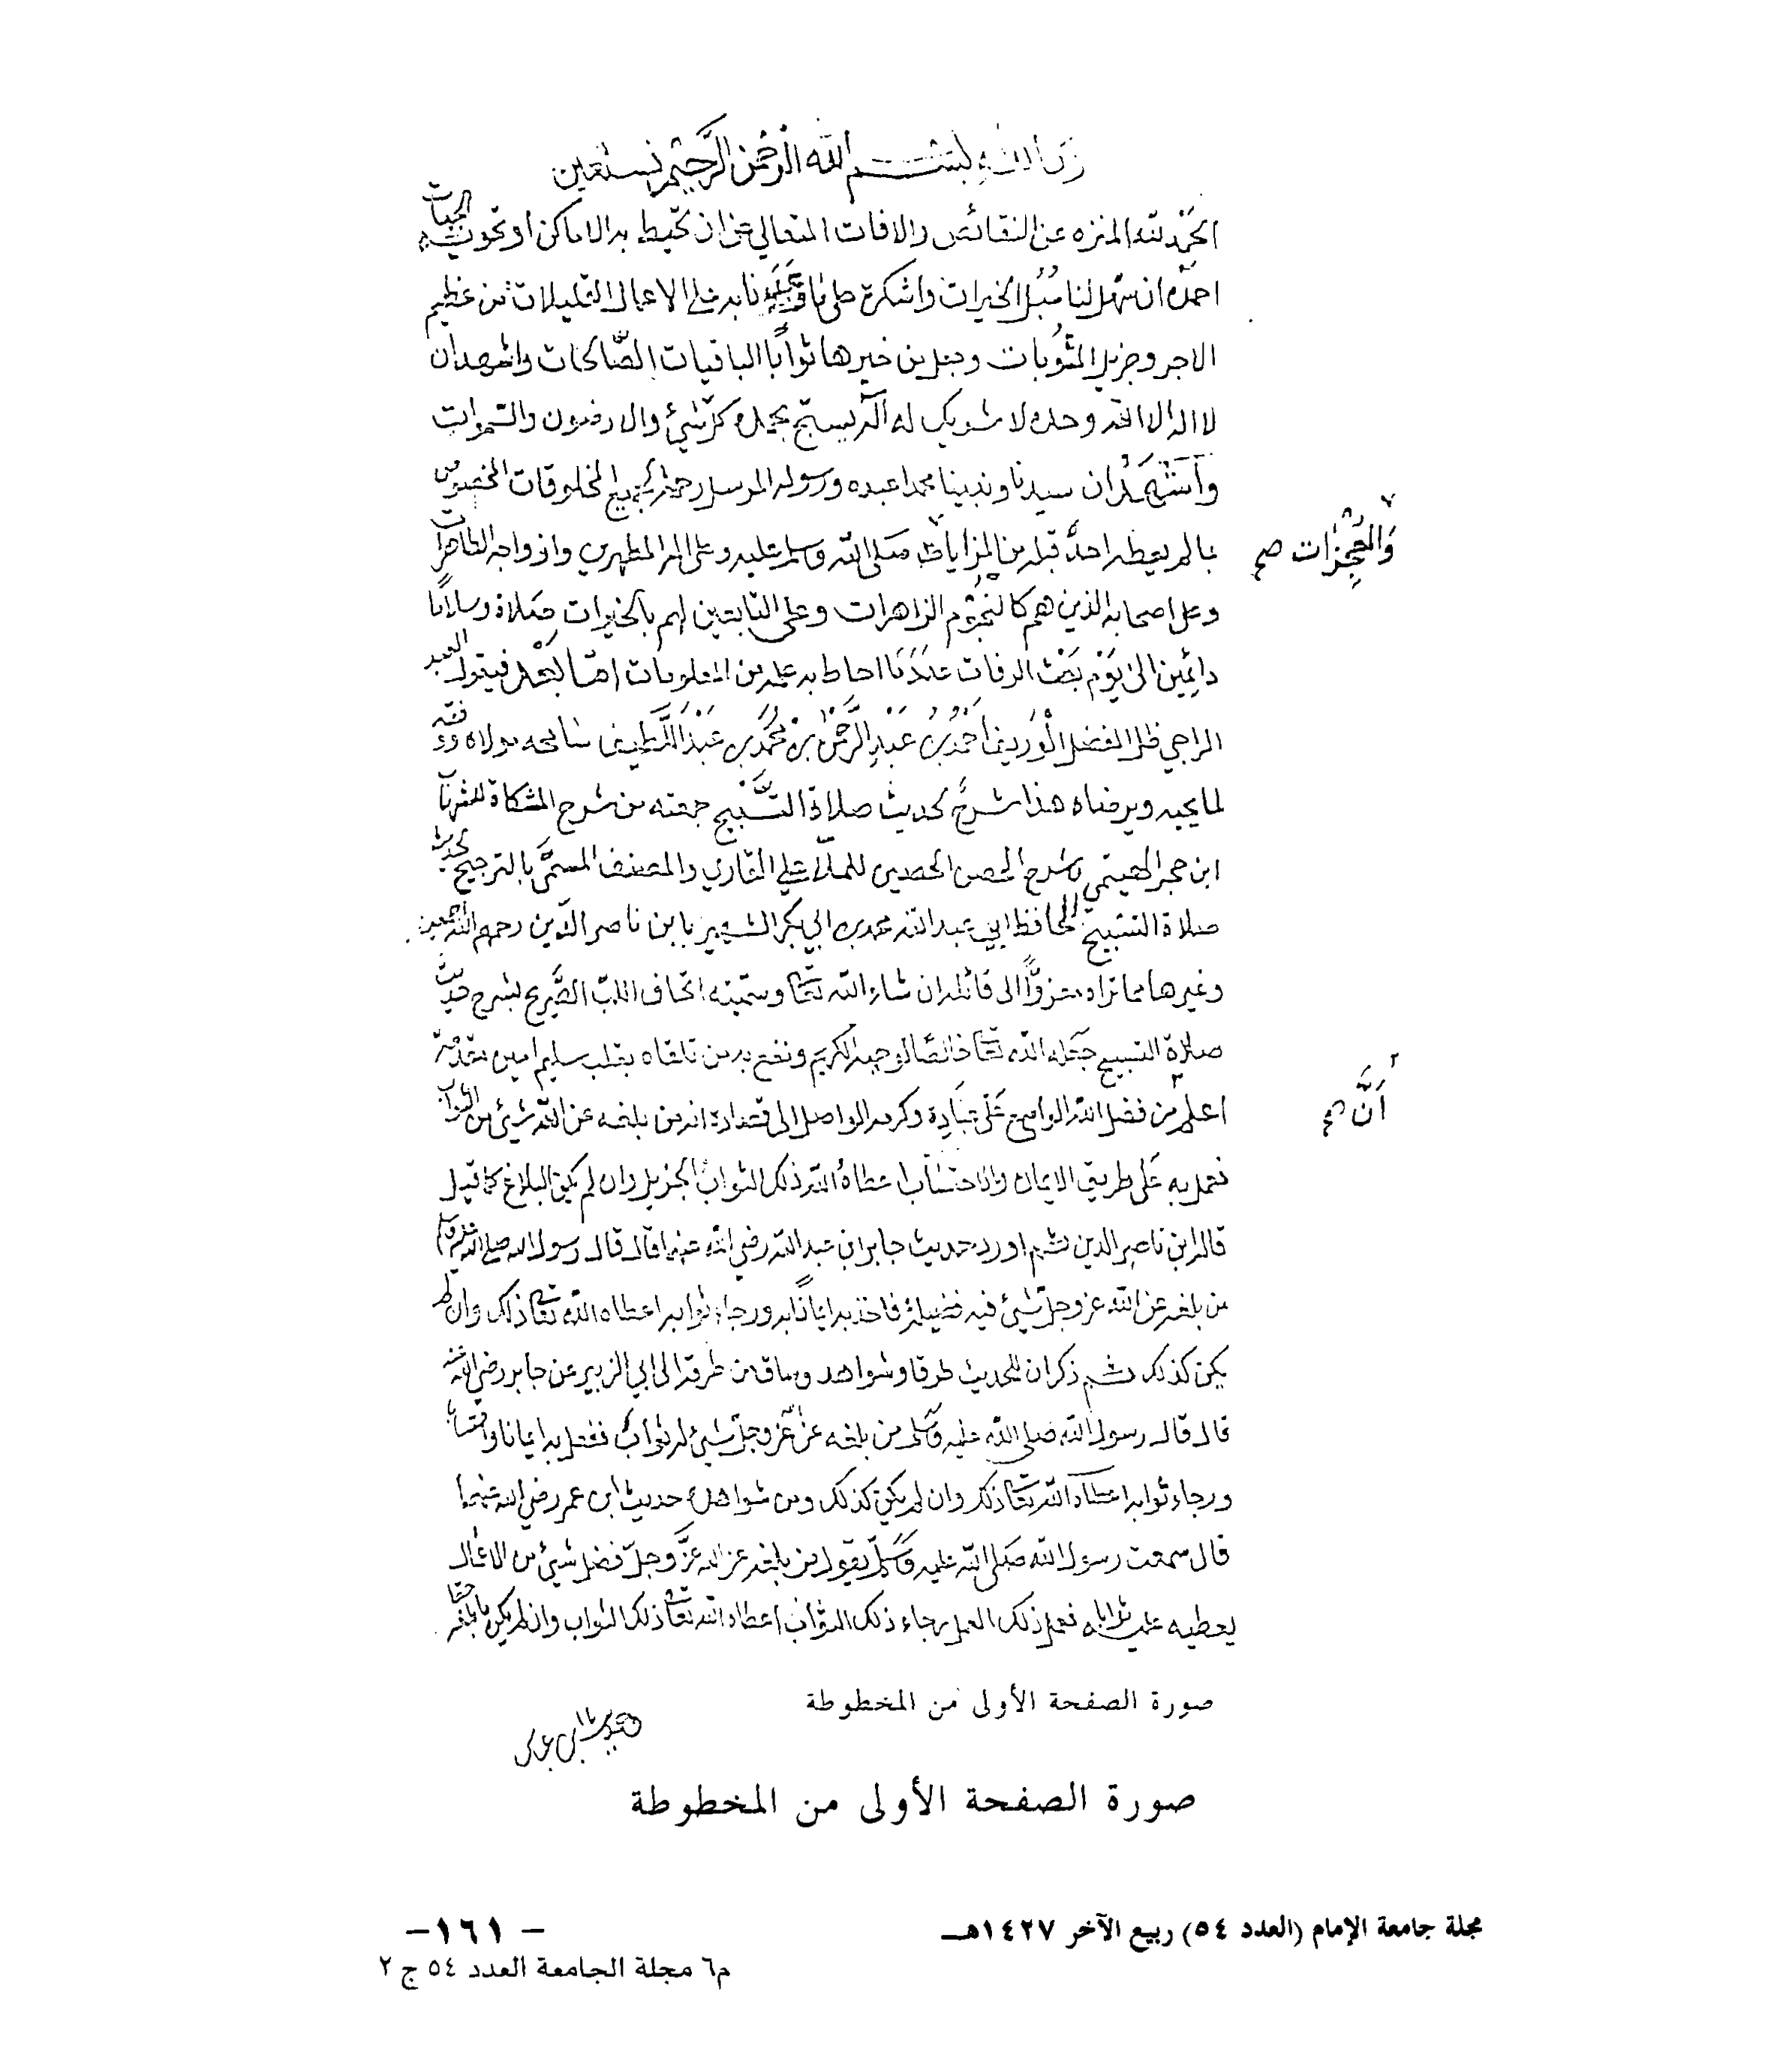 بسم الله الرحمن الرحيم نستعين
الحمد لله المنزه عن النقائص والافات المتعالي عن ان تحيط به الاماكن أو تحويه الجهات
احمده ان سهل لنا سُبُل الخيرات واشكره على ما نا به على الاعمال القليلات من عظيم
الاجر وجزيل المثوبات وجعل من خيرها ثوابًا الباقيات الصّالحات واشهد ان
لا اله الا الله وحده لا شريك له يسبّح بحمده كل شيء والارضون والسّموات
وأشهد ان سيدنا ونبينا محمدا عبده ورسوله المرسل رحمة لجميع المخلوقات المخصوص
بما لم يعطه احدٌ قبله من المزايا صلى الله وسلم عليه وعلى اله المطهرين وازواجه الطاهرات
والمُعجِزات صح
وعلى اصحابه الذين هم كالنجوم الزاهرات وعلى التابعين لهم بالخيرات صلاة وسلامًا
دائمين الى يَوْم بعث الرفات عدد ما احاط به علمه من المعلومات امّا بعد فيقول العبد
الراجي ظل الفضل الوريف أحمد بن عَبْد الرَّحمن بن محمد بن عَبْد اللَّطيف سامحه مولاه ووفقه
لما يحبه ويرضاه هذا شرحٌ لحديث صلاة التَّسْبيح جمعته من شرح المشكاة للشهاب
ابن حجر الهيتمي وشرح الحصن الحصين للملّا علي القاري والمصنف المسمَّى بالترجيح لحديث
صلاة التسبيح للحافظ ابي عبد الله محمد بن ابي بكر الشهير بابن ناصر الدّين رحمهم الله اجمعين
وغيرها مما تراه معزوًّا الى قائله ان شاء الله تعا وسمّيته اتحاف اللبّ الصَّريح بشرح حديث
صلاة التسبيح جعله الله تعا خالصًا لوجهه الكريم ونفع به من تلقاه بقلب سليم امين مقدمة
اعلم من فضل الله الواسع عَلَى عِبَادِه وكرمه الواصل الى قصاده انه من بلغه عن الله شيئ من الثواب
أنَّ صح
فعمل به عَلَى طريق الايمان والاحتساب اعطاهُ الله ذلك الثوابَ الجزيل وان لم يكن البلاغ كما قيل
قاله ابن ناصر الدين ثم اورد حديث جابر ابن عبد الله رضي الله عنهما قال قال رسول الله صلى الله عليه وسلم
من بلغه عن الله عز وجلّ شيئ فيه فضيلة فاخذ به ايمانًا به ورجاء ثوابه اعطاه الله تعا ذلك وان لم
يكن كذلك ثم ذكر ان للحديث طرقا وشواهد وساق من طرقه الى ابي الزبير عن جابر رضي الله عنه
قال قال رسول الله صلى الله عليه وسلم من بلغه عن عز وجلّ شيئ له ثواب فعمل به ايمانا واحتسابا
ورجاء ثوابه اعطاه الله تعا ذلك وان لم يكن كذلك ومن شواهده حديث ابن عمر رضي الله عنهما
قال سمعت رسول الله صلى الله عليه وسلم يقول من بلغه عن الله عزَّ وجلّ فضل شيئ من الاعمال
يعطيه عليه ثوابا فعمل ذلك العمل رجاء ذلك الثواب اعطاه الله تعا ذلك الثواب وان لم يكن ما بلغه حقا
صورة الصفحة الأولى من المخطوطة
صورة الصفحة الأولى من المخطوطة
مجلة جامعة الإمام (العدد ٥٤) ربيع الآخر ١٤٢٧هـ
– ١٦١–
م٦ مجلة الجامعة العدد ٥٤ ج ٢